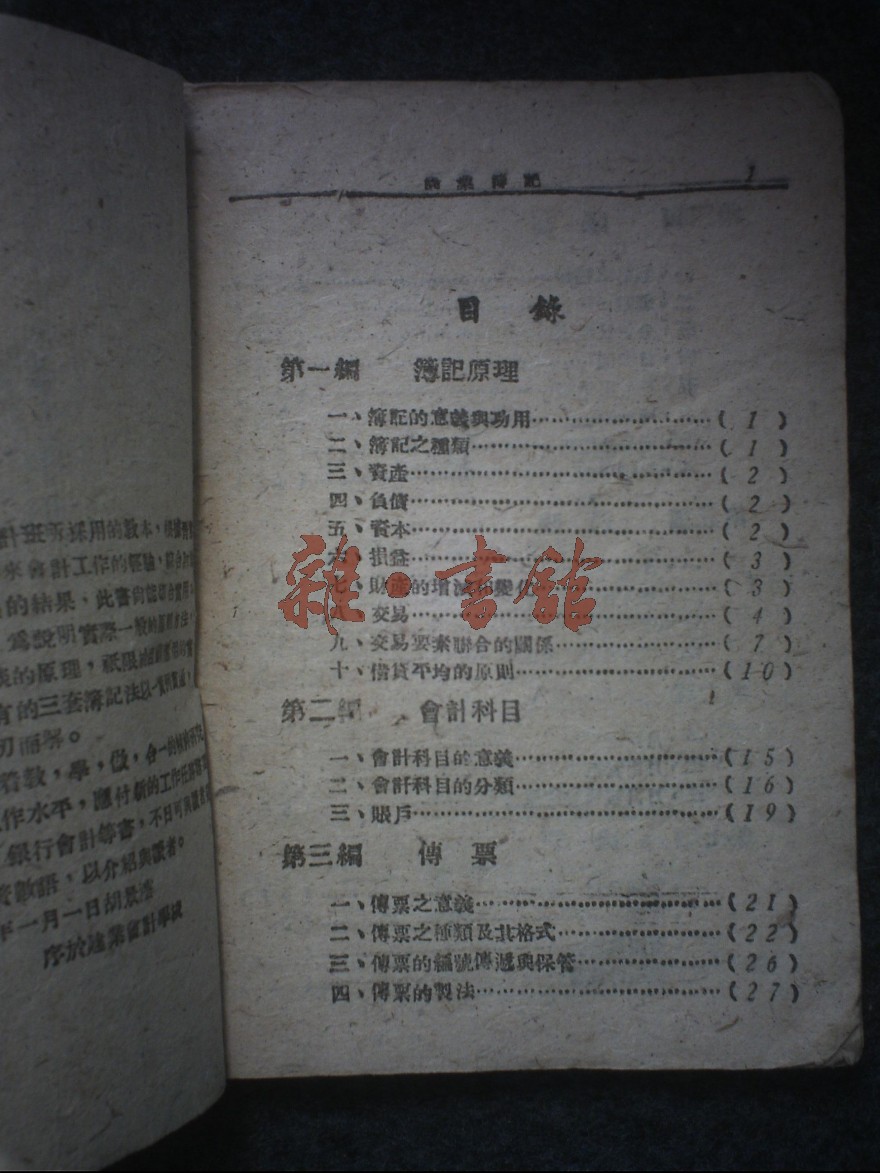 計班所採用的教本，
來會計工作的經驗，
的結果，此書向認
為說明實際一般的
的原理，祇限
有的三套簿記法以
切而解。
教，學，做，合一的
作水平，應付新的工作
銀行會計等書，不日可與讀者
數語，以介紹與讀者。
年一月一日胡景
序於建業會計學
商業簿記 1
目錄
第一編 簿記原理
一、簿記的意義與功用……………………(1)
二、簿記之種類……………………(1)
三、資產……………………(2)
四、負債……………………(2)
五、資本……………………(2)
六、損益……………………(3)
七、財產的增減和變化……………………(3)
八、交易……………………(4)
九、交易要素聯合的關係……………………(7)
十、借貸平均的原則……………………(10)
第二編 會計科目
一、會計科目的意義……………………(15)
二、會計科目的分類……………………(16)
三、賬戶……………………(19)
第三編 傳票
一、傳票之意義……………………(21)
二、傳票之種類及其格式……………………(22)
三、傳票的編號傳遞與保管……………………(26)
四、傳票的製法……………………(27)
雜·書館